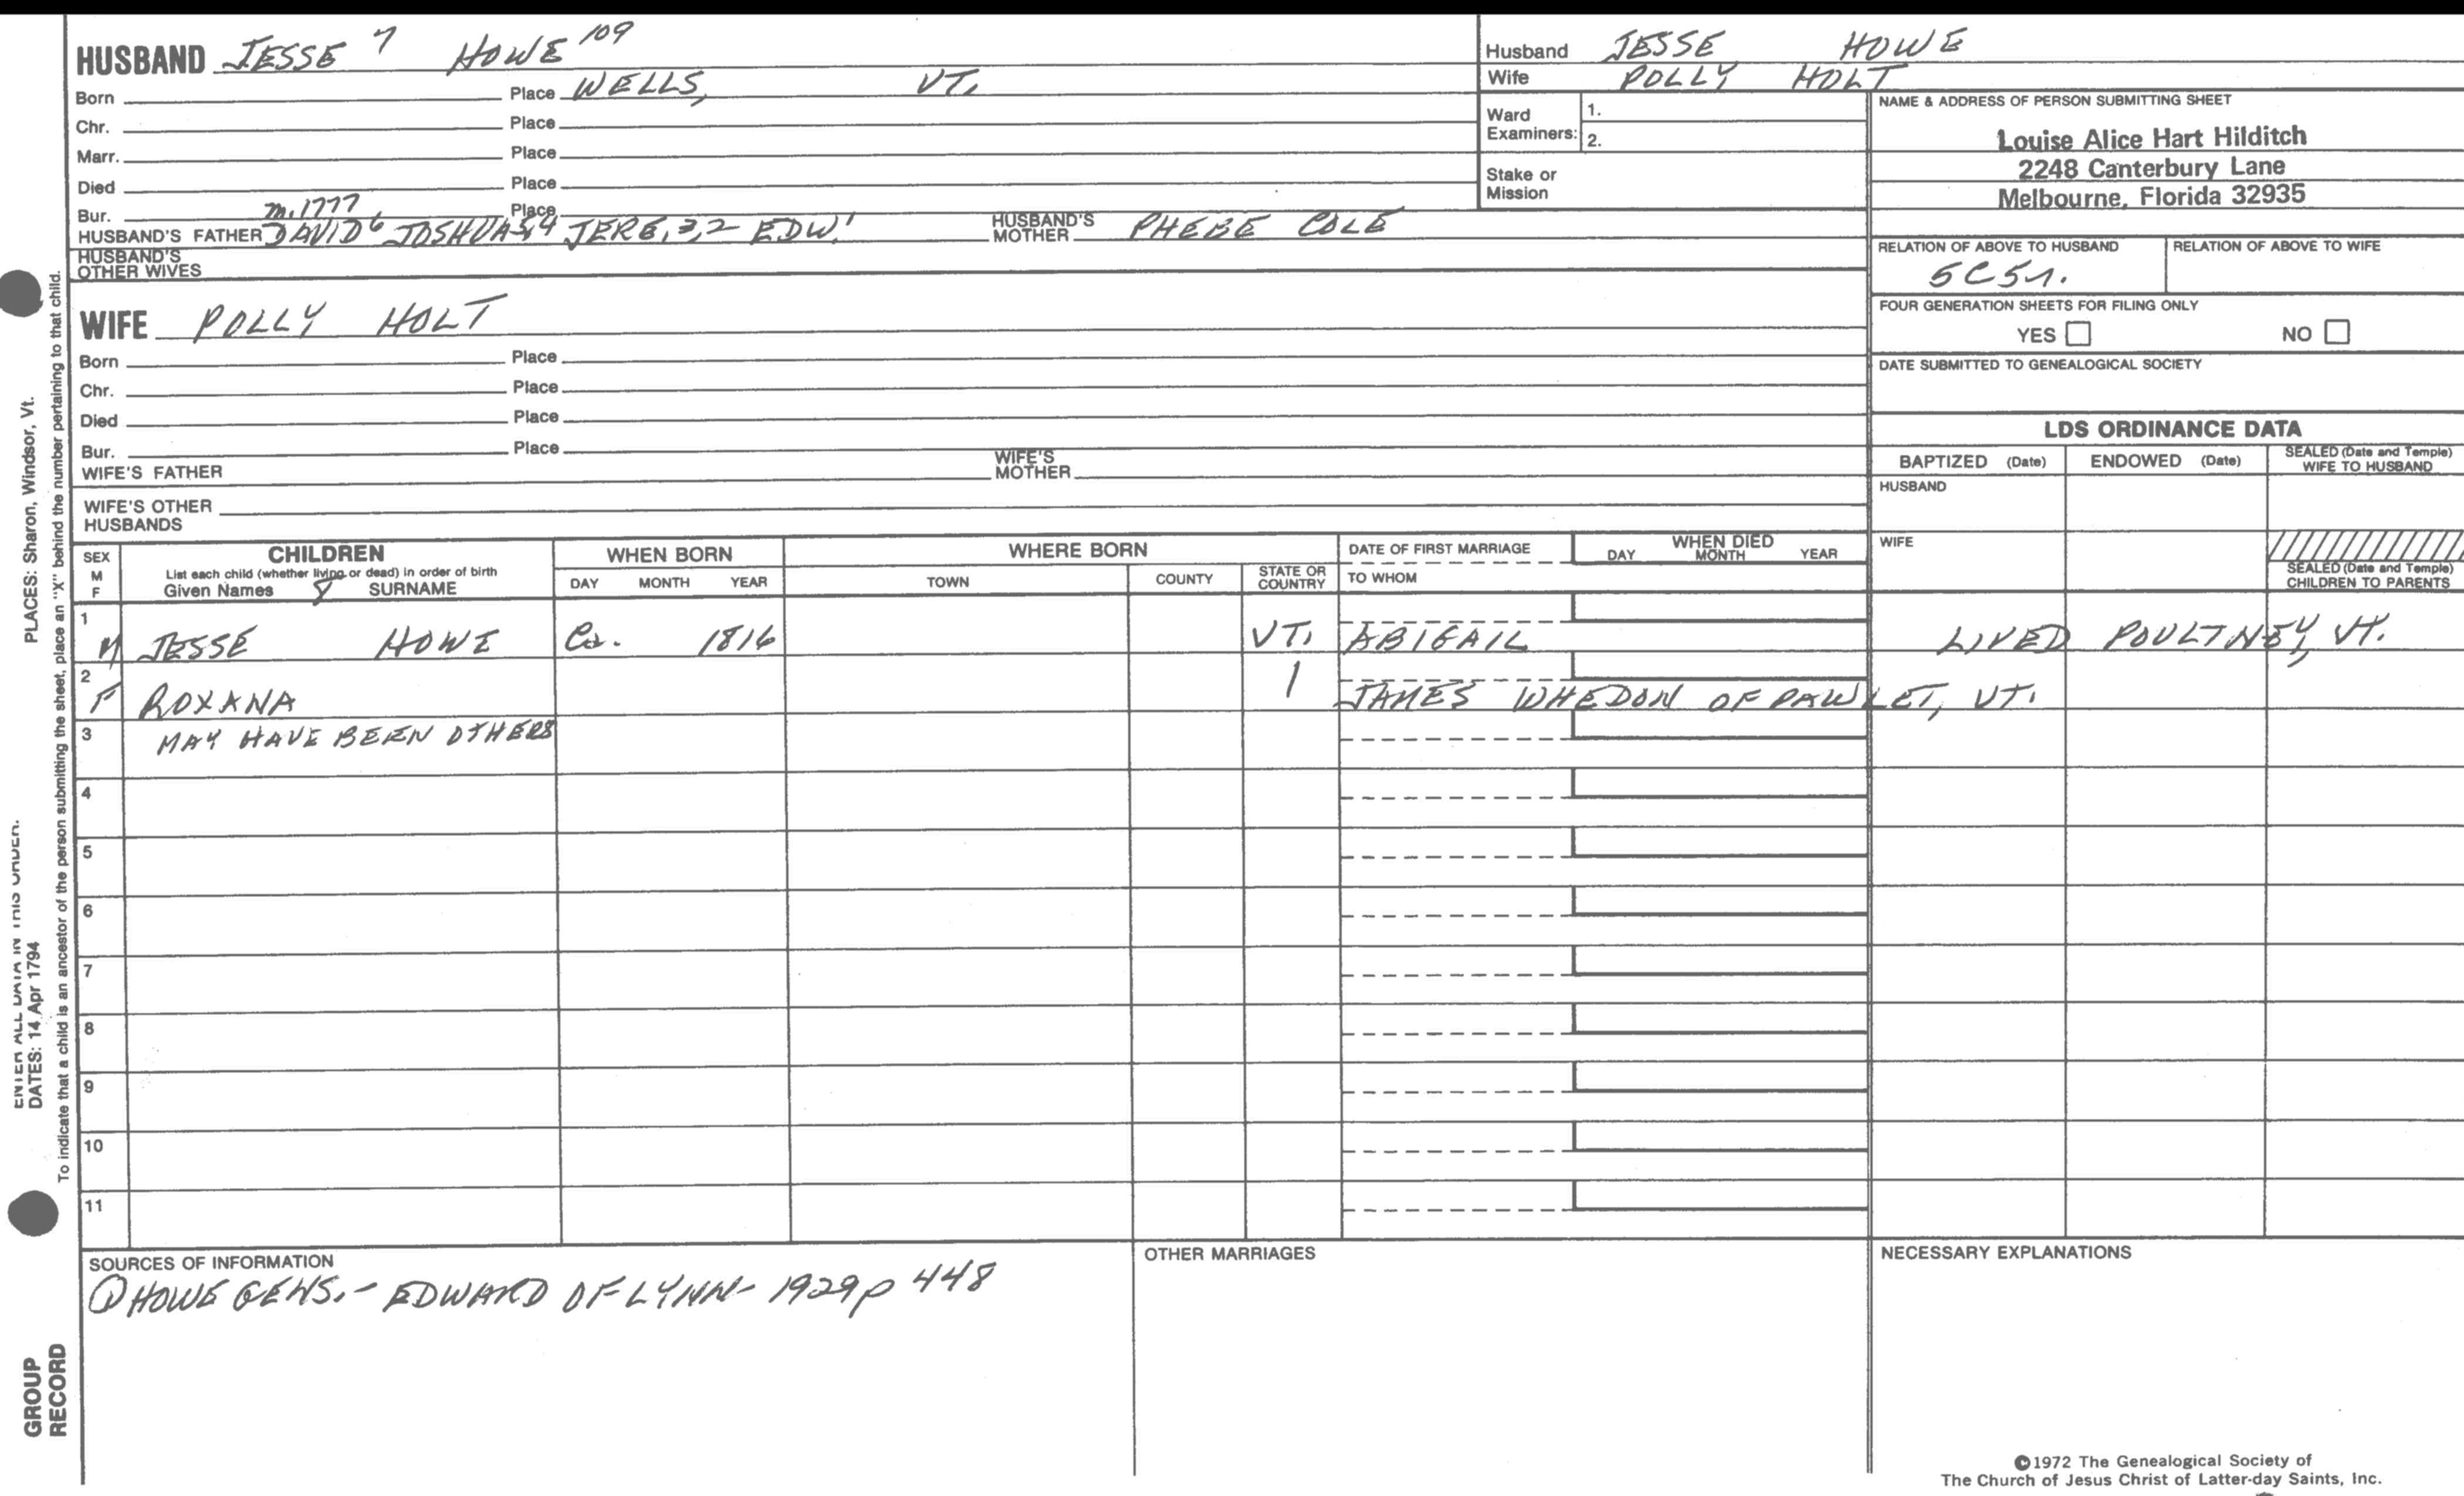 HUSBAND JESSE 7 HOWE 109
Born Place WELLS, VT.
Chr. Place
Marr. Place
Died Place
Bur. Place
m. 1777
HUSBAND'S FATHER DAVID 6 JOSHUA 5,4 JERE. 3,2 EDW. 1 HUSBAND'S MOTHER PHEBE COLE
HUSBAND'S OTHER WIVES
WIFE POLLY HOLT
Born Place
Chr. Place
Died Place
Bur. Place
WIFE'S FATHER WIFE'S MOTHER
WIFE'S OTHER HUSBANDS
Husband JESSE HOWE
Wife POLLY HOLT
Ward Examiners: 1.
2.
Stake or Mission
NAME & ADDRESS OF PERSON SUBMITTING SHEET
Louise Alice Hart Hilditch
2248 Canterbury Lane
Melbourne, Florida 32935
RELATION OF ABOVE TO HUSBAND RELATION OF ABOVE TO WIFE
5C5r.
FOUR GENERATION SHEETS FOR FILING ONLY
YES NO
DATE SUBMITTED TO GENEALOGICAL SOCIETY
LDS ORDINANCE DATA
BAPTIZED (Date) ENDOWED (Date) SEALED (Date and Temple) WIFE TO HUSBAND
HUSBAND
WIFE
SEALED (Date and Temple) CHILDREN TO PARENTS
SEX M F CHILDREN WHEN BORN WHERE BORN DATE OF FIRST MARRIAGE WHEN DIED
List each child (whether living or dead) in order of birth
Given Names SURNAME DAY MONTH YEAR TOWN COUNTY STATE OR COUNTRY TO WHOM DAY MONTH YEAR
1 M JESSE HOWE Ca. 1816 VT. ABIGAIL LIVED POULTNEY, VT.
2 F ROXANA JAMES WHEDON OF PAWLET, VT.
3 MAY HAVE BEEN OTHERS
4
5
6
7
8
9
10
11
SOURCES OF INFORMATION
① HOWE GENS. - EDWARD OF LYNN - 1929 p 448
OTHER MARRIAGES
NECESSARY EXPLANATIONS
©1972 The Genealogical Society of
The Church of Jesus Christ of Latter-day Saints, Inc.
ENTER ALL DATA IN THIS ORDER.
DATES: 14 Apr 1794
PLACES: Sharon, Windsor, Vt.
To indicate that a child is an ancestor of the person submitting the sheet, place an "X" behind the number pertaining to that child.
GROUP
RECORD